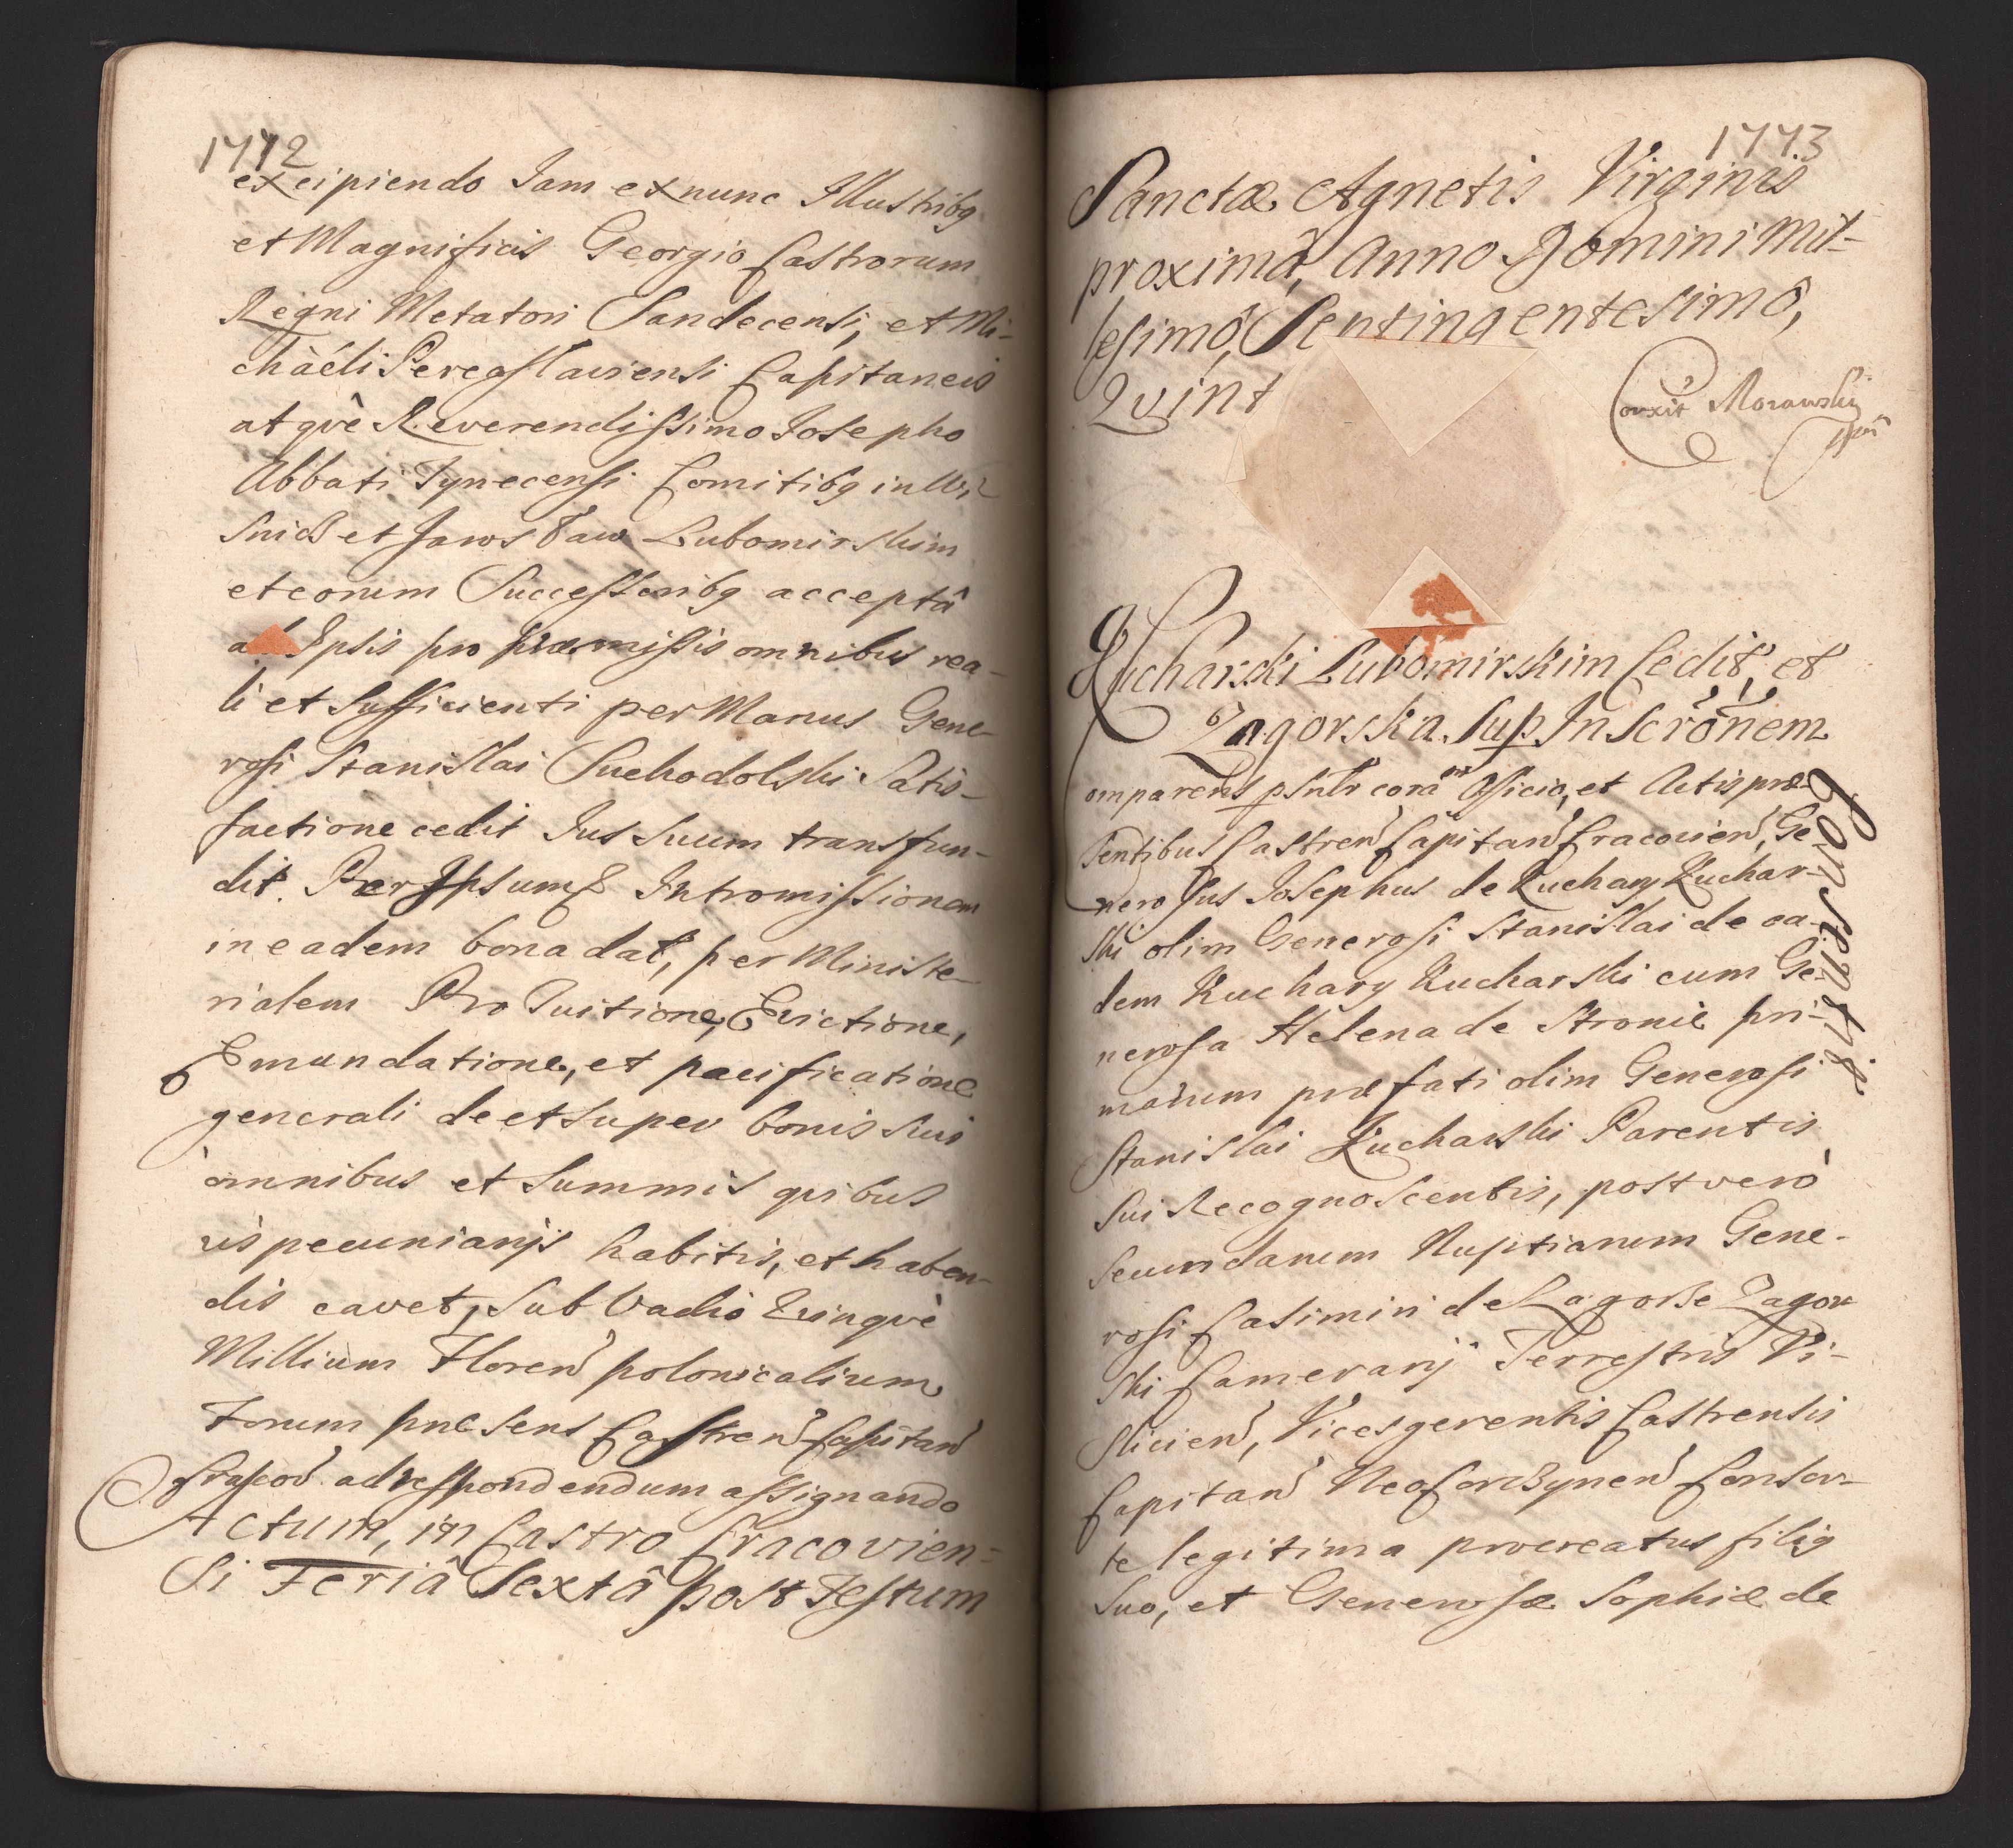 1772
excipiendo Iam exnunc Illustribq
et Magnificis Georgio Castrorum
Regni Metatori Sandecensi, et Mi-
chàéli Pereaslaviensi Capitaneis
atqvè Reverendissimo Iosepho
Abbati Tynecensi Comitibq in Wi-
snicz et Jarosław Lubomirskim
et eorum Successoribq acceptâ
Ipsis pro præmissis omnibus rea-
li et Sufficienti per Manus Gene-
rosi Stanislai Suchodolski Satis-
factione cedit Ius Suum transfun-
dit. Per Ipsumq Intromissionem
in eadem bona dat, per Ministe-
rialem Pro Tuitione, Evictione,
Emundatione, et pacificatione
generali de et super bonis suis
omnibus et Summis qvibus
vis pecuniarijs habitis, et haben-
dis cavet, Sub Vadio Qvinqvè
Millium Floren polonicalium
Forum præsens Castren Capitan
Cracov ad respondendum assignando
Actum, in Castro Cracovien-
si Feriâ Sextâ post Festum
1773
Sanctæ Agnetis Virginis
proximâ, Anno Domini Mil-
lesimô, Septingentesimô,
Qvint
Correxit Morawski
mpr
Kucharski Lubomirskim Cedit, et
Zagorska Sup Inscrõnem
omparens psnlr coram Officio, et Actis præ-
sentibus Castren Capitan Cracovien, Ge-
nerosus Iosephus de Kuchary Kuchar-
ski olim Generosi Stanislai de ea-
dem Kuchary Kucharski cum Ge-
nerosa Helena de Stronie pri-
marum præfati olim Generosi
Stanislai Kucharski Parentis
sui Recognoscentis, post verò
Secundarum Nuptiarum Gene-
rosi Casimiri de Zagorze Zagor-
ski Camerarij Terrestris Vi-
slicien, Vicesgerentis Castrensis
Capitan Neocorczynen Consor-
te legitima procreatus filiq
Suo, et Generosæ Sophiæ de
Consensus.